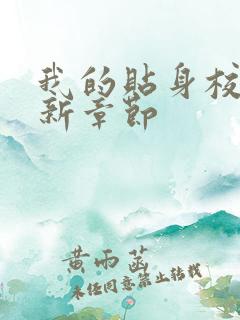 我的贴身校
新章节
黄雨菡
未经同意禁止转载